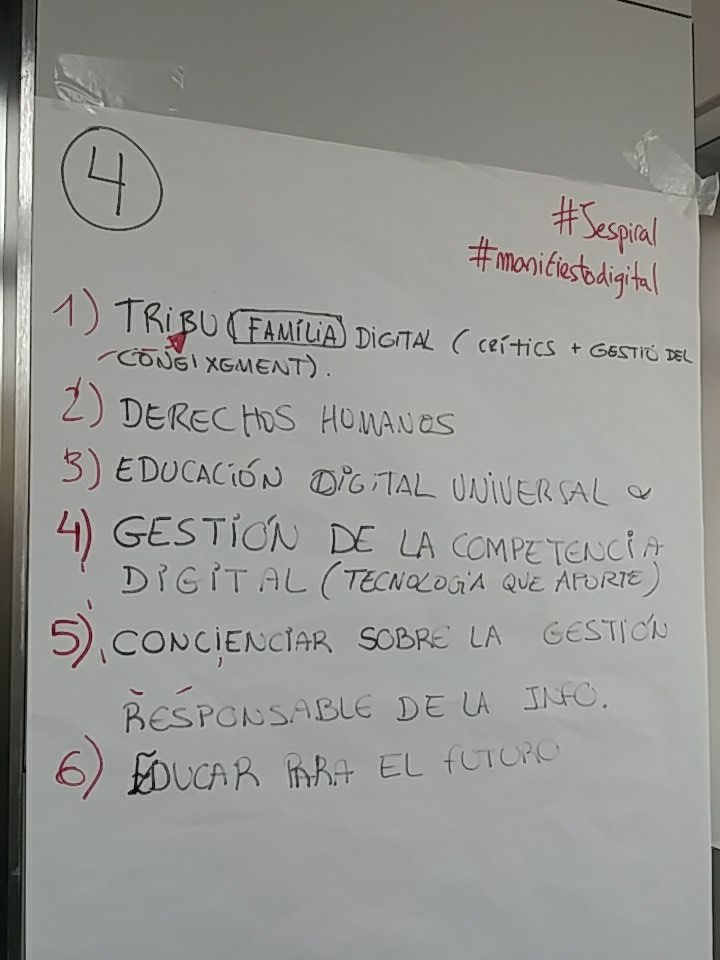 4
#Jespiral
#manifiestodigital
1) TRIBU (FAMÍLIA) DIGITAL (CRÍTICS + GESTIÓ DEL
CONEIXEMENT).
2) DERECHOS HUMANOS
3) EDUCACIÓN DIGITAL UNIVERSAL
4) GESTIÓN DE LA COMPETENCIA
DIGITAL (TECNOLOGÍA QUE APORTE)
5) CONCIENCIAR SOBRE LA GESTIÓN
RESPONSABLE DE LA INFO.
6) EDUCAR PARA EL FUTURO